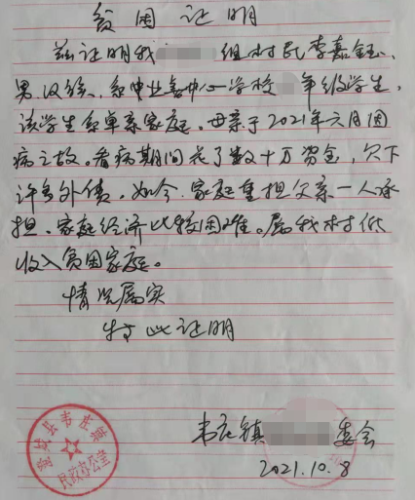 贫困证明
兹证明我 组村民李嘉钰、
男、汉族、系中业善中心学校 年级学生,
该学生系单亲家庭。母亲于2021年六月因
病亡故。看病期间花了数十万资金,欠下
许多外债。如今,家庭重担父亲一人承
担,家庭经济比较困难。属我村低
收入贫困家庭。
情况属实
特此证明
韦庄镇 委会
2021.10.8
澄城县韦庄镇
民政办公室